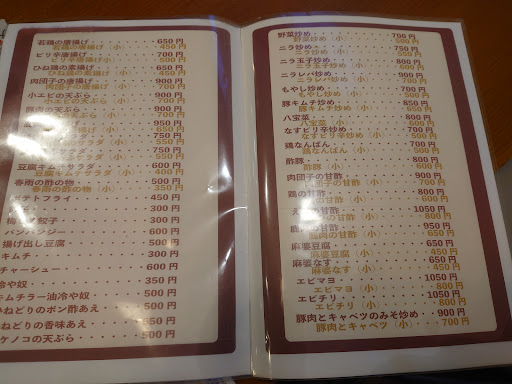 若鶏の唐揚げ・・・・・・650円
若鶏の唐揚げ（小）・・・450円
ピリ辛唐揚げ・・・・・・700円
ピリ辛唐揚げ（小）・・・500円
ひね鶏の素揚げ・・・・・650円
ひね鶏の素揚げ（小）・・450円
肉団子の唐揚げ・・・・・900円
肉団子の唐揚げ（小）・・700円
小エビの天ぷら・・・・・900円
小エビの天ぷら（小）
950円
750円
550円
750円
550円
豆腐キムチサラダ・・・・600円
豆腐キムチサラダ（小）・400円
春雨の酢の物・・・・・・500円
春雨の酢の物（小）・・・350円
ポテトフライ・・・・・・450円
300円
ギョ子・・・・・・300円
バンバンジー・・・・・・600円
揚げ出し豆腐・・・・・・500円
キムチ・・・・・・300円
チャーシュー・・・・・・600円
冷や奴・・・・・・350円
キムチラー油冷や奴・・・500円
ひねどりのポン酢あえ・・500円
ひねどりの香味あえ・・・650円
ケノコの天ぷら・・・・・500円
野菜炒め・・・・・・700円
野菜炒め（小）・・・500円
ニラ炒め・・・・・・750円
ニラ炒め（小）・・・550円
ニラ玉子炒め・・・・800円
ニラ玉子炒め（小）・600円
ニラレバ炒め・・・・900円
ニラレバ炒め（小）・700円
もやし炒め・・・・・700円
もやし炒め（小）・・500円
豚キムチ炒め・・・・850円
豚キムチ炒め（小）・650円
八宝菜・・・・・・・800円
八宝菜（小）・・・・600円
なすピリ辛炒め・・・700円
なすピリ辛炒め（小）・500円
鶏なんばん・・・・・700円
鶏なんばん（小）・・500円
酢豚・・・・・・・・800円
酢豚（小）・・・・・600円
肉団子の甘酢・・・・900円
肉団子の甘酢（小）・700円
鶏の甘酢・・・・・・800円
の甘酢（小）・・・600円
1050円
の甘酢（小）・・・800円
肉の甘酢・・・・・950円
肉の甘酢（小）・・750円
麻婆豆腐・・・・・・650円
麻婆豆腐（小）・・・450円
麻婆なす・・・・・・650円
麻婆なす（小）・・・450円
エビマヨ・・・・・・1050円
エビマヨ（小）・・・800円
エビチリ・・・・・・1050円
エビチリ（小）・・・800円
豚肉とキャベツのみそ炒め・・900円
豚肉とキャベツ（小）・・700円